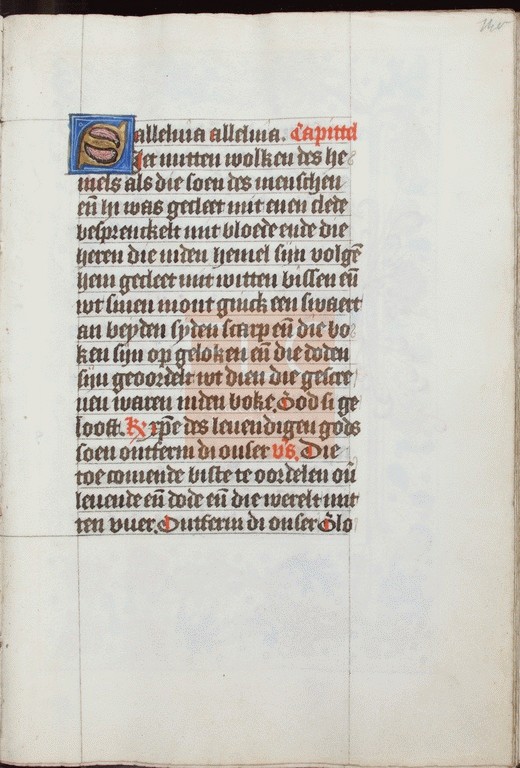 alleluia alleluia. Capittel
Siet mitten wolken des he
mels als die soen des menschen
eñ hi was gecleet mit enen clede
besprenckelt mit bloede ende die
heren die inden hemel sijn volgẽ
hem gecleet mit witten bissen eñ
wt sinen mont ginck een swaert
an beyden syden scarp eñ die bo
ken sijn op geloken eñ die doden
sijn geoordelt wt dien die gescre
uen waren inden boke. God si ge
looft. R xp̃e des leuendigen gods
soen ontferm di onser vs. Die
toe comende biste te oordelen oũ
leuende eñ dode eñ die werelt mit
ten vuer. Ontferm di onser Glo